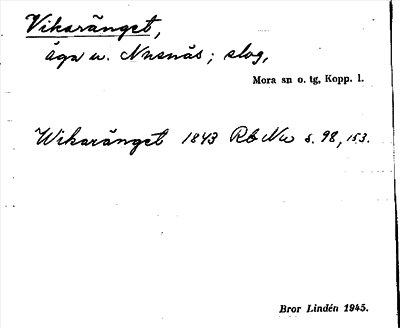 Vikaränget,
äga u. Nusnäs; slog,
Mora sn o. tg, Kopp. l.
Wikaränget 1843 Rb Nu s. 98, 153.
Bror Lindén 1945.